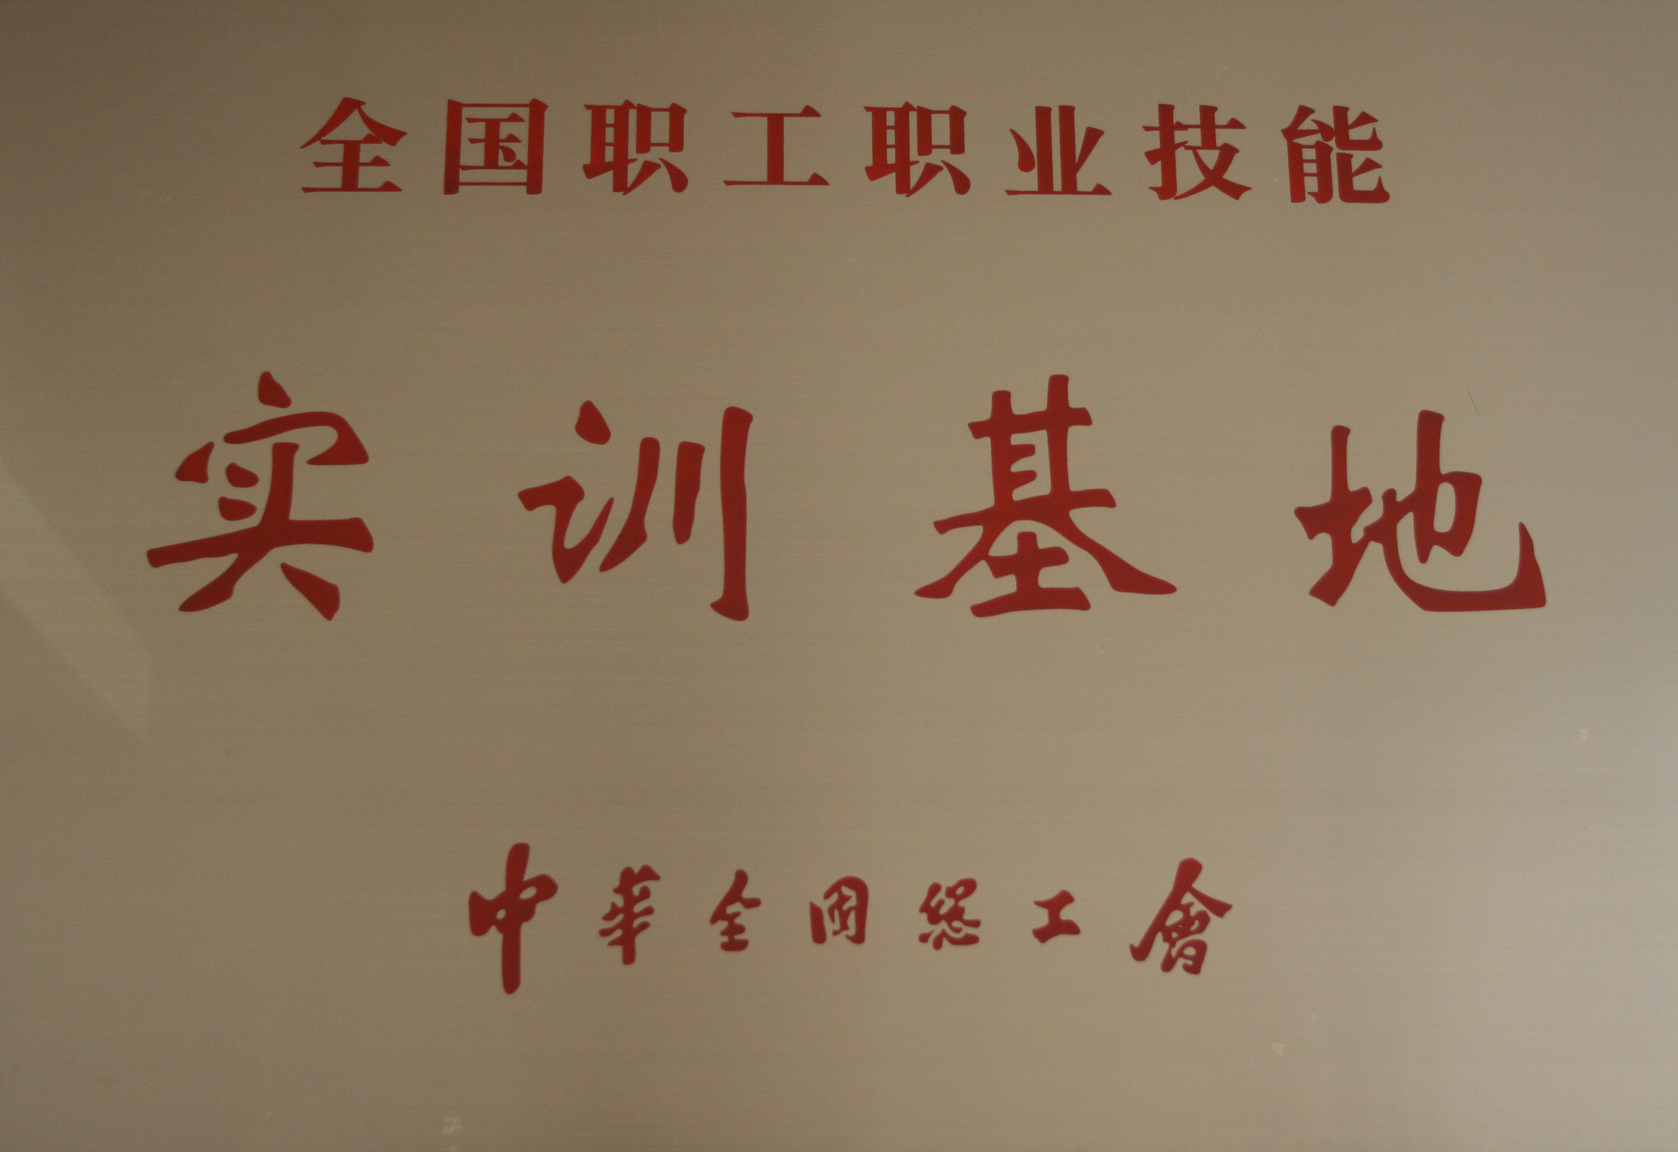 全国职工职业技能
实训基地
中華全国總工會